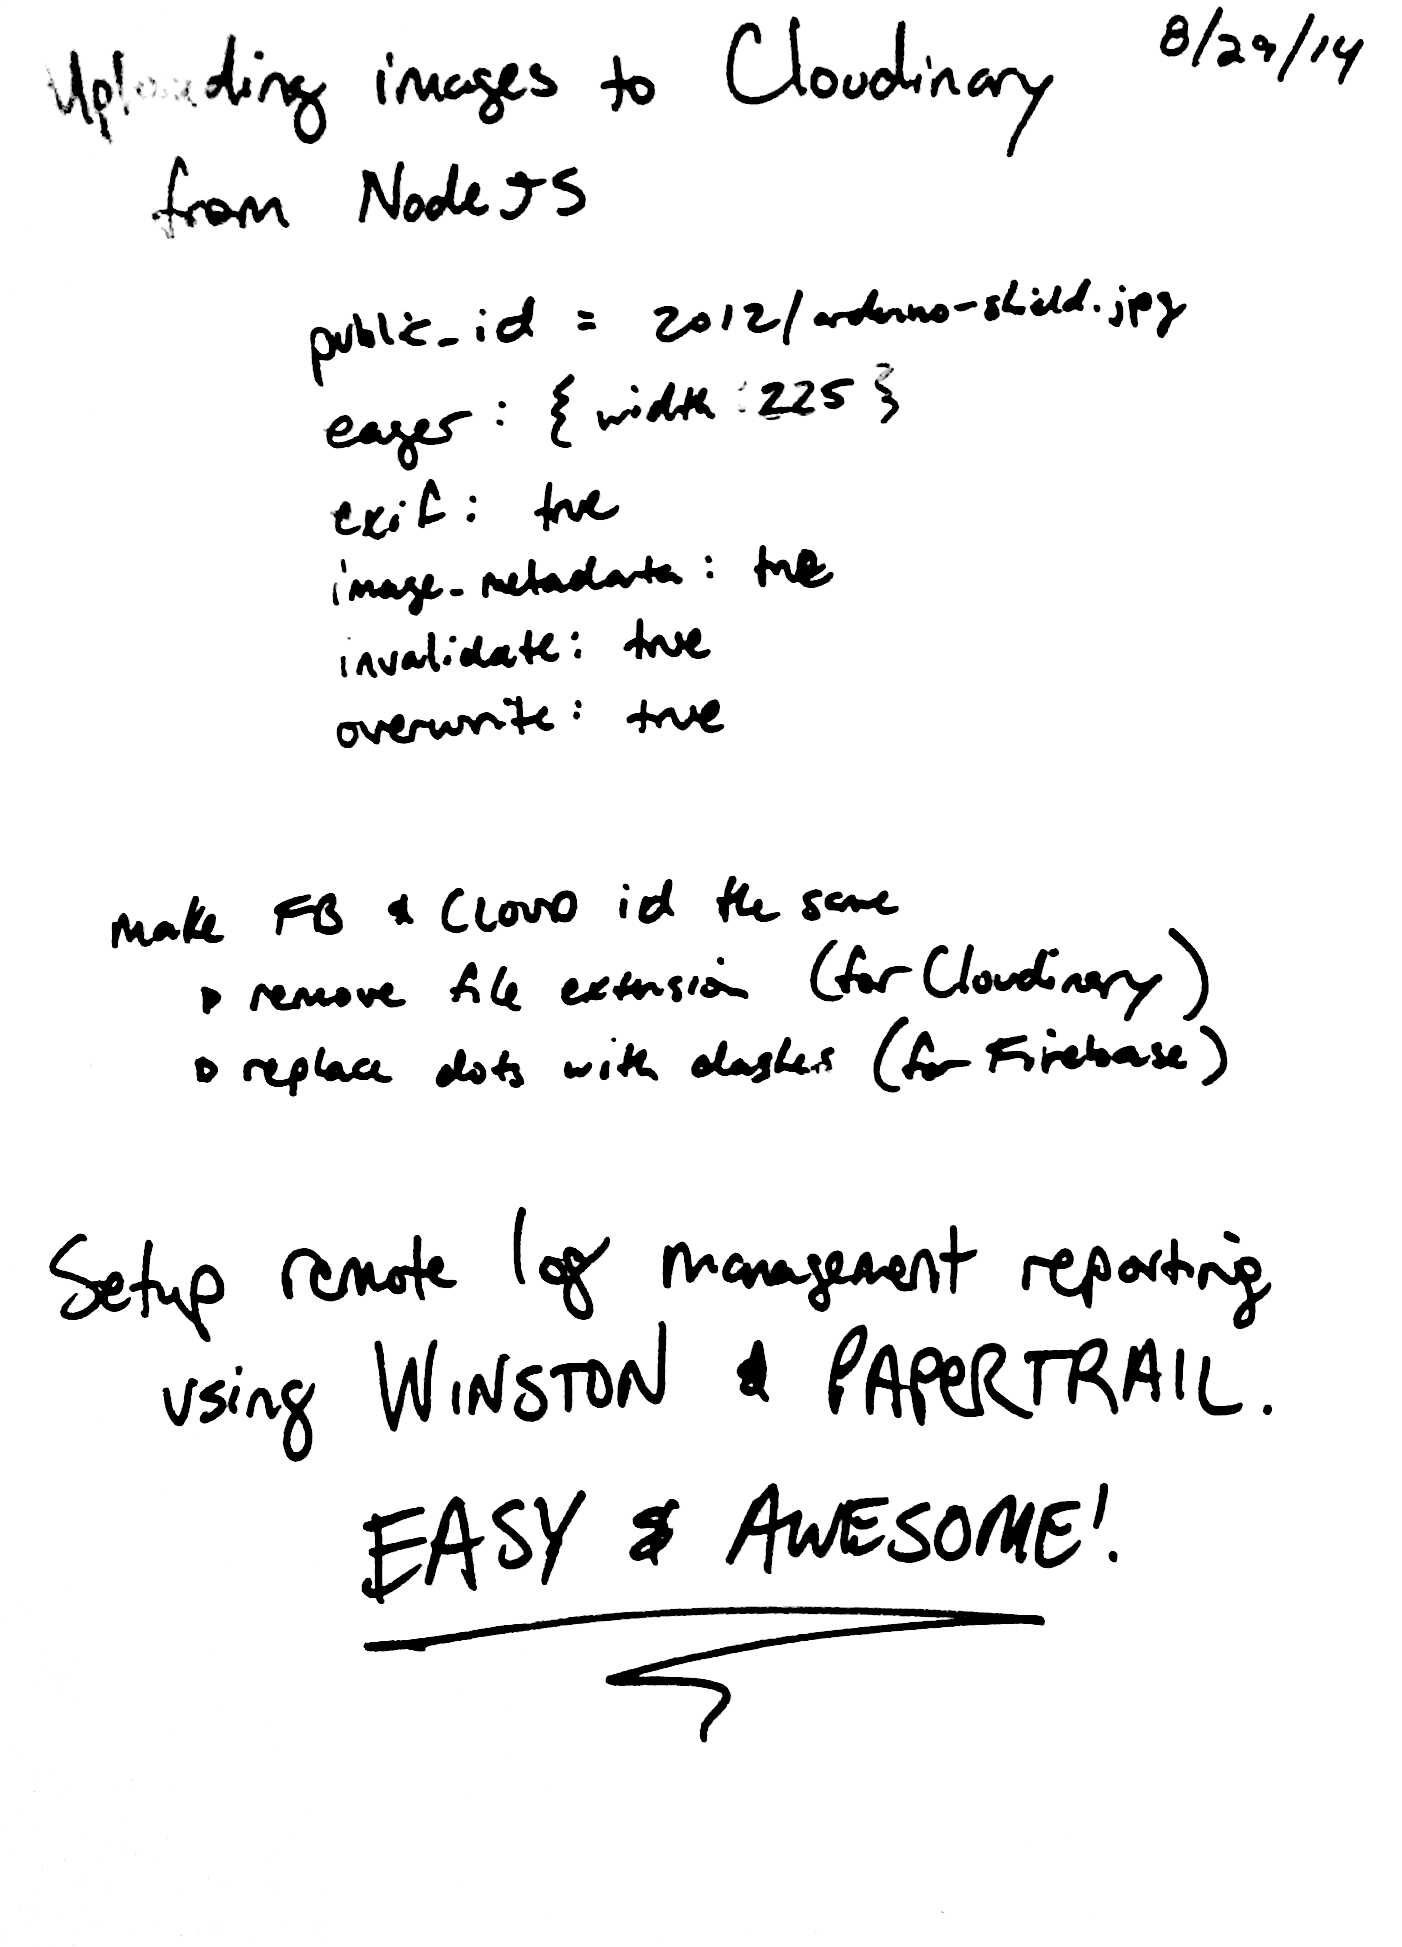 Uploading images to Cloudinary 8/29/14
from NodeJS
public_id = 2012/arduino-shield.jpg
eager: { width: 225 }
exif: true
image_metadata: true
invalidate: true
overwrite: true
make FB & CLOUD id the same
▷ remove file extension (for Cloudinary)
▷ replace dots with dashes (for Firebase)
Setup remote log management reporting
using WINSTON & PAPERTRAIL.
EASY & AWESOME!